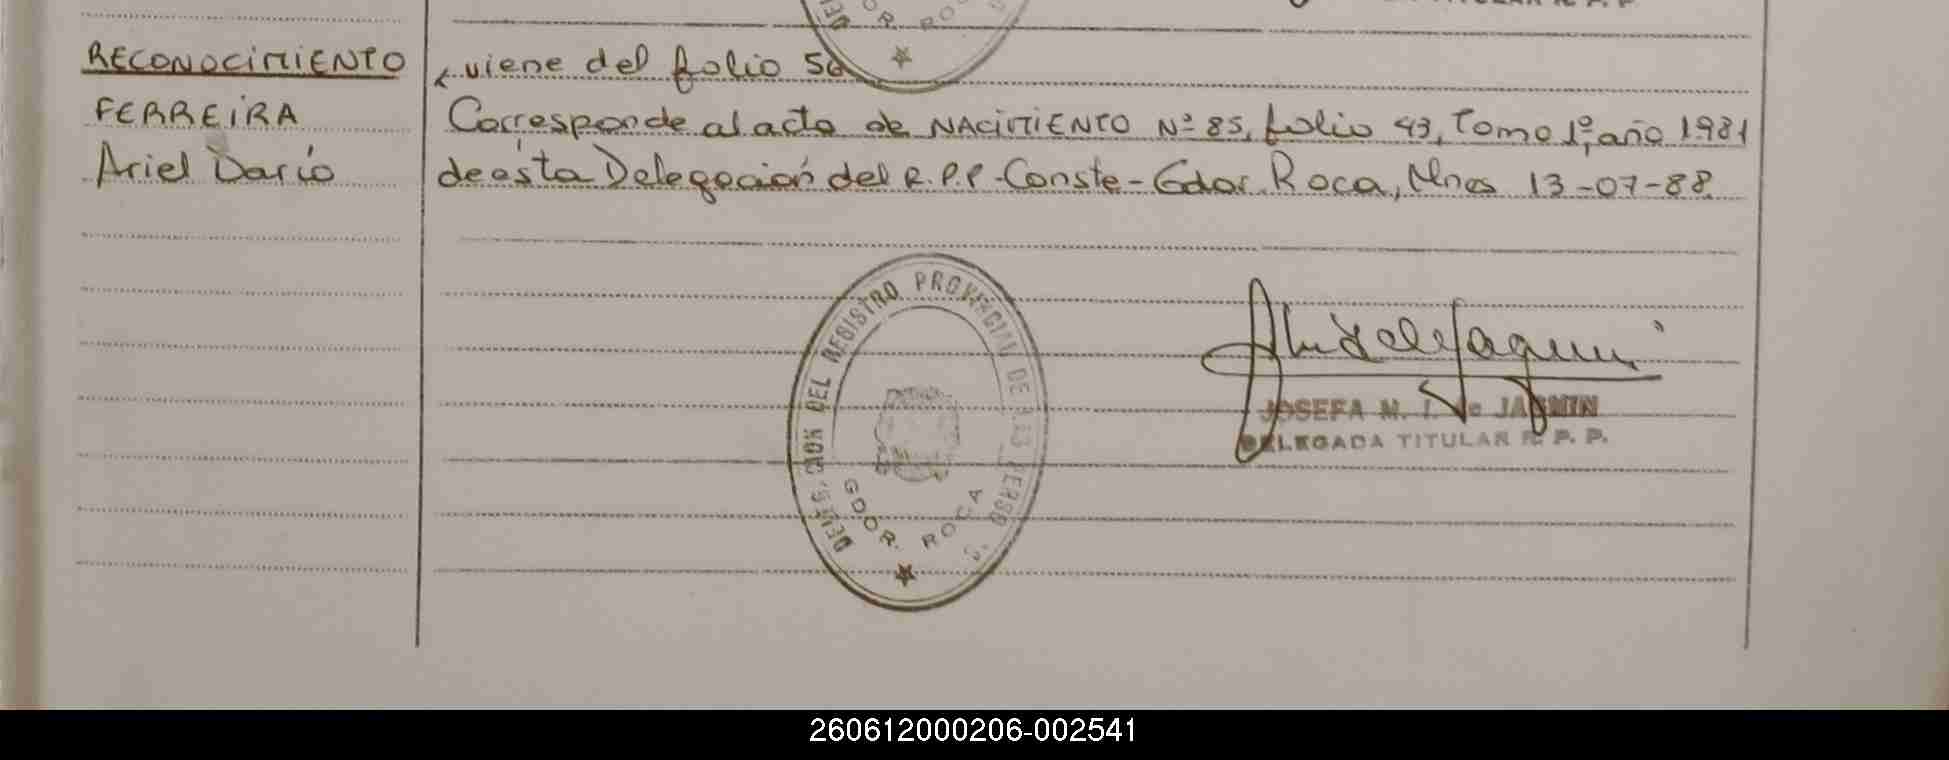 RECONOCIMIENTO
FERREIRA
Ariel Darío
viene del folio 50
Corresponde al acta de NACIMIENTO Nº 85, folio 43, Tomo 1º, año 1981
de ésta Delegación del R.P.P.-Conste-Gdor. Roca, Mnes 13-07-88
DELEGACION DEL REGISTRO PROVINCIAL DE LAS PERSONAS
GDOR. ROCA
JOSEFA M. I. de JASMIN
DELEGADA TITULAR R. P. P.
260612000206-002541